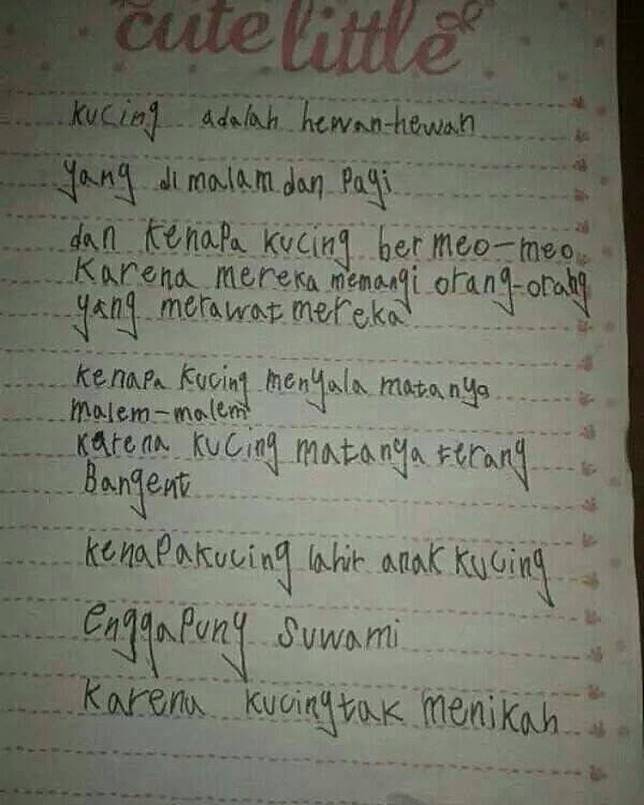 cute little
kucing adalah hewan-hewan
yang di malam dan pagi
dan kenapa kucing bermeo-meo
karena mereka memangi orang-orang
yang merawat mereka
kenapa kucing menyala matanya
malem-malem
karena kucing matanya terang
Bangent
kenapa kucing lahir anak kucing
enggapuny suwami
karena kucing tak menikah